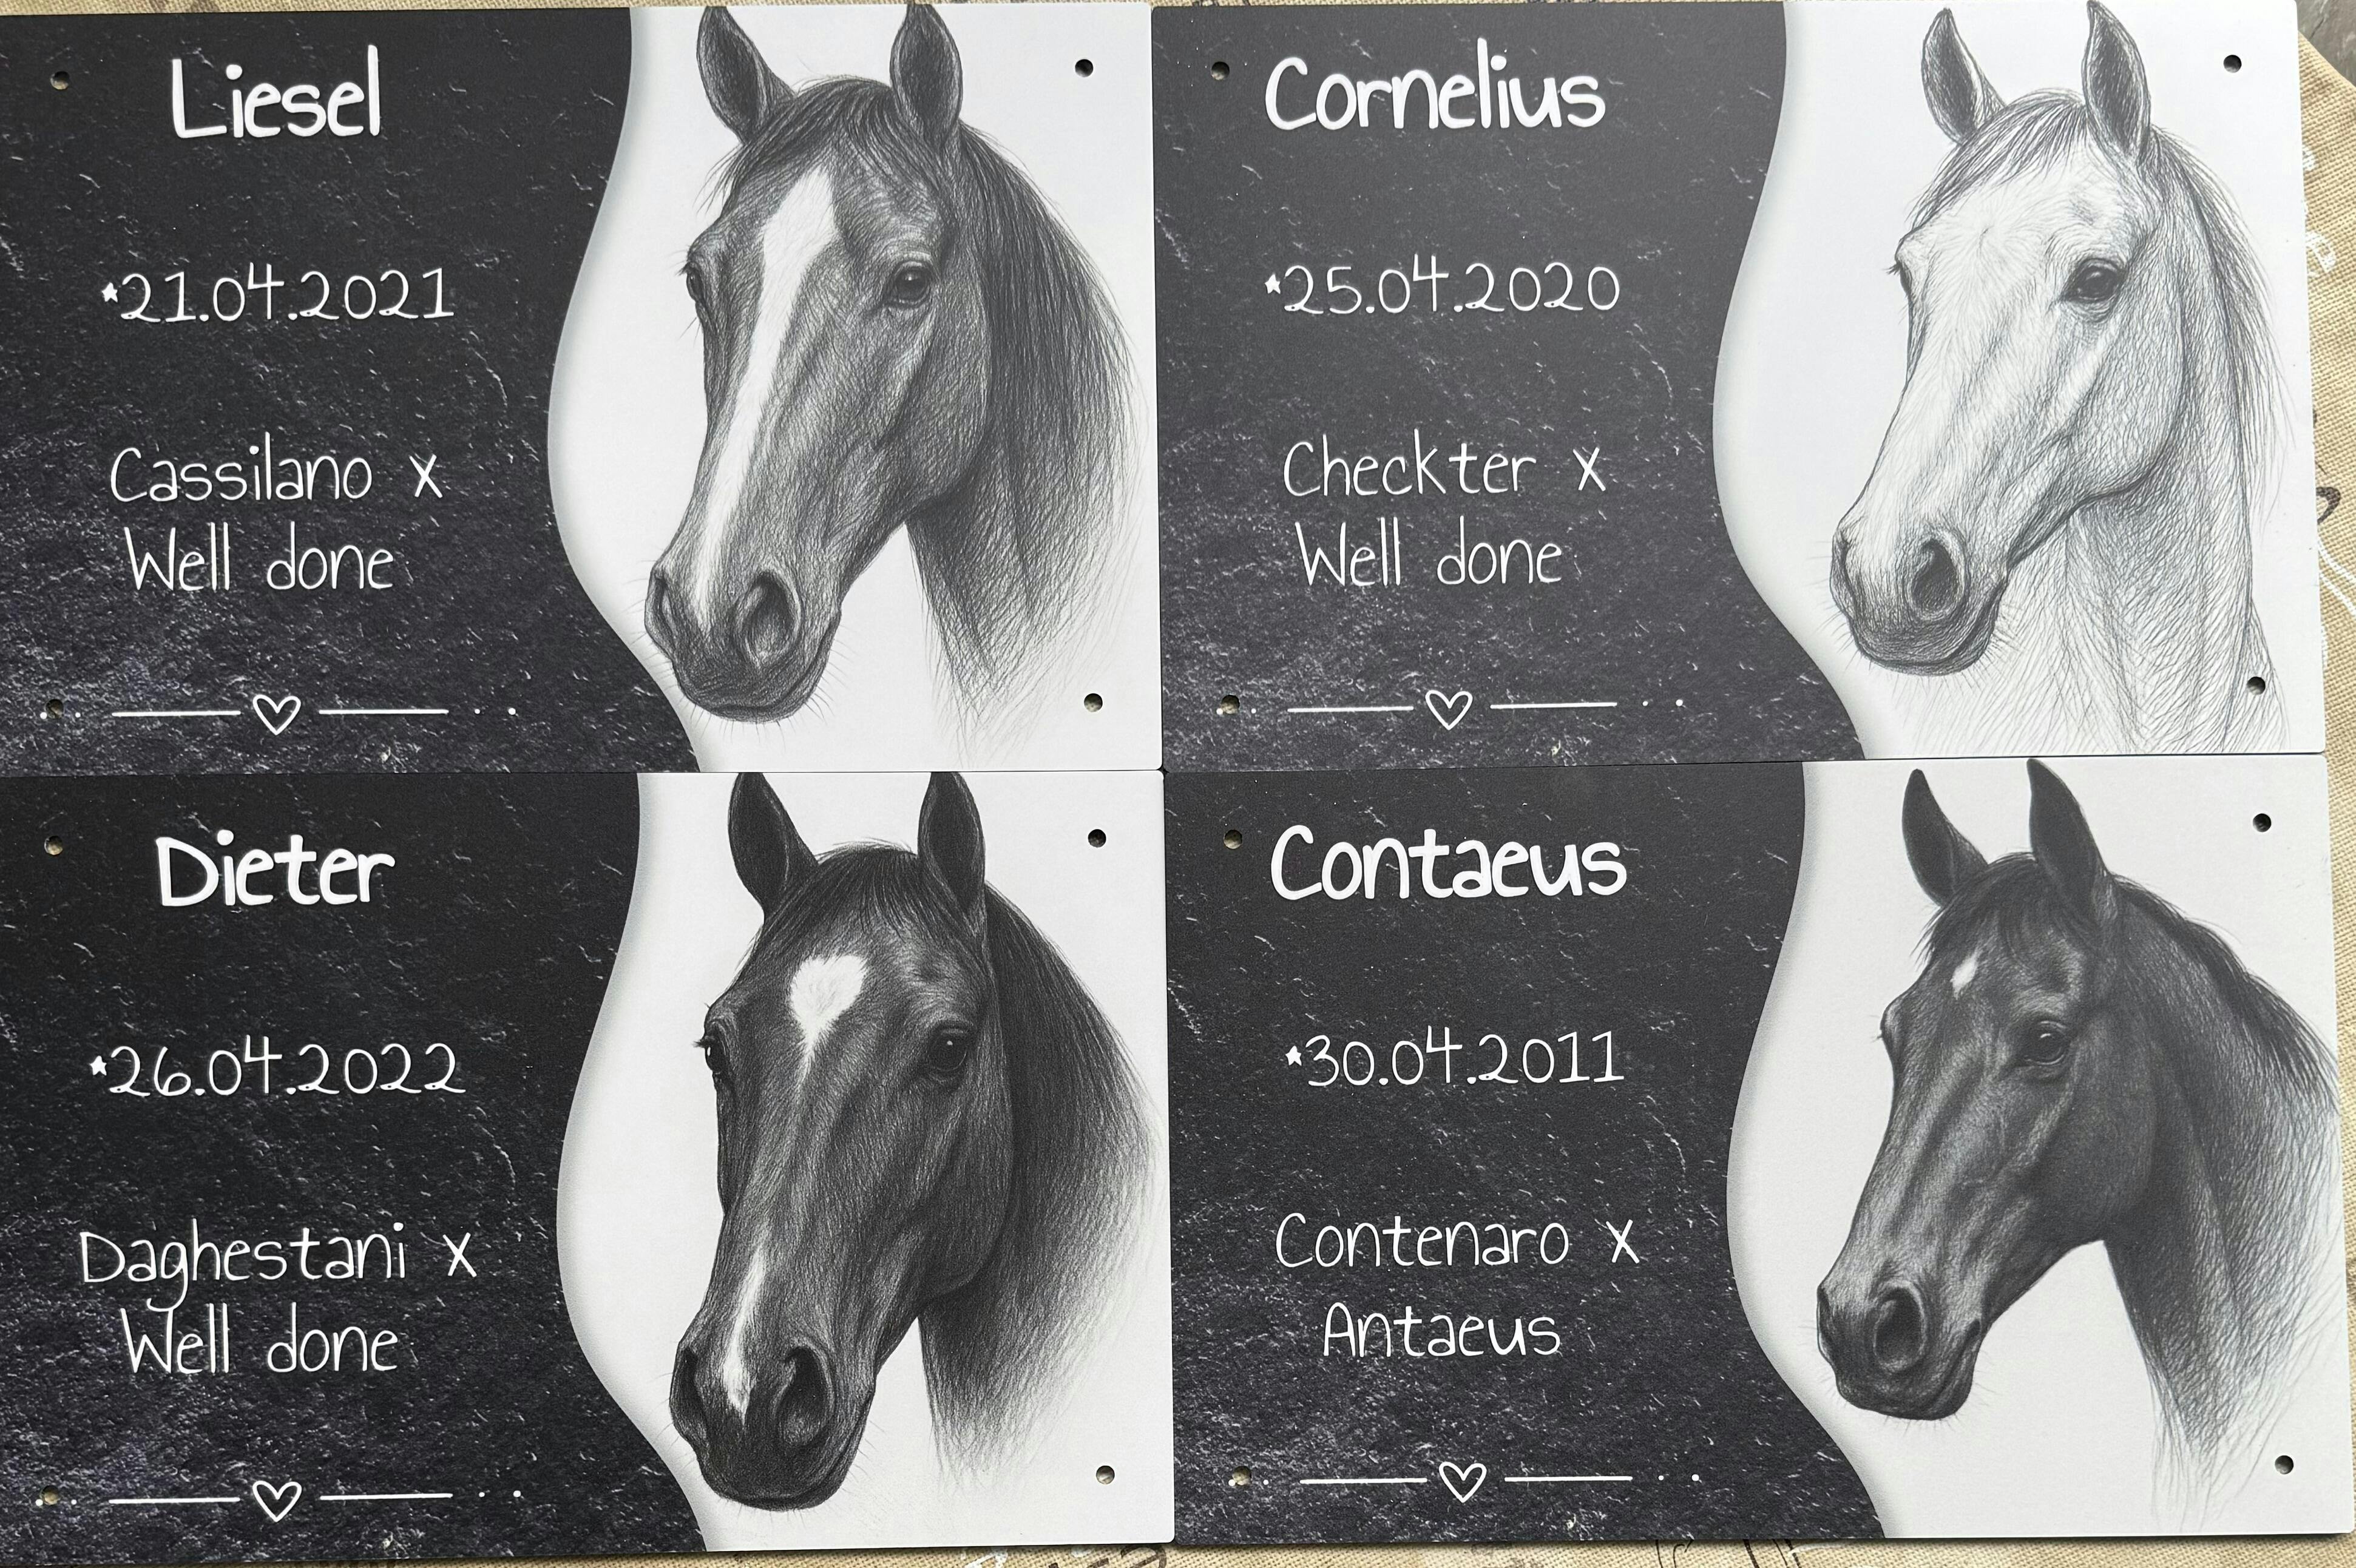 Liesel
*21.04.2021
Cassilano x
Well done
Cornelius
*25.04.2020
Checkter x
Well done
Dieter
*26.04.2022
Daghestani x
Well done
Contaeus
*30.04.2011
Contenaro x
Antaeus